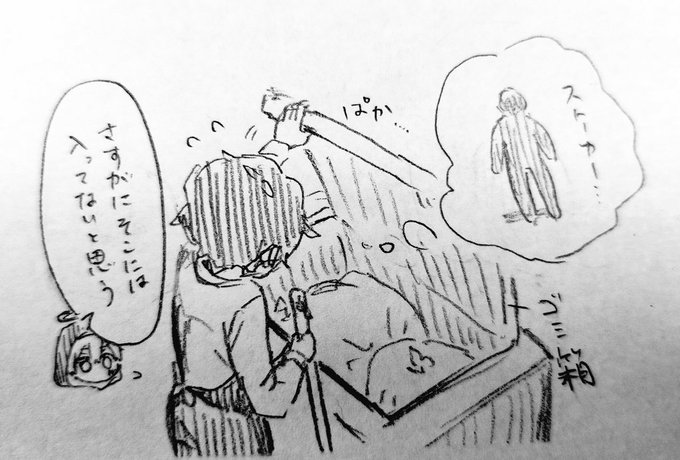 ストーカー…
ぱか……
さすがにそこには
入ってないと思う
ゴミ箱